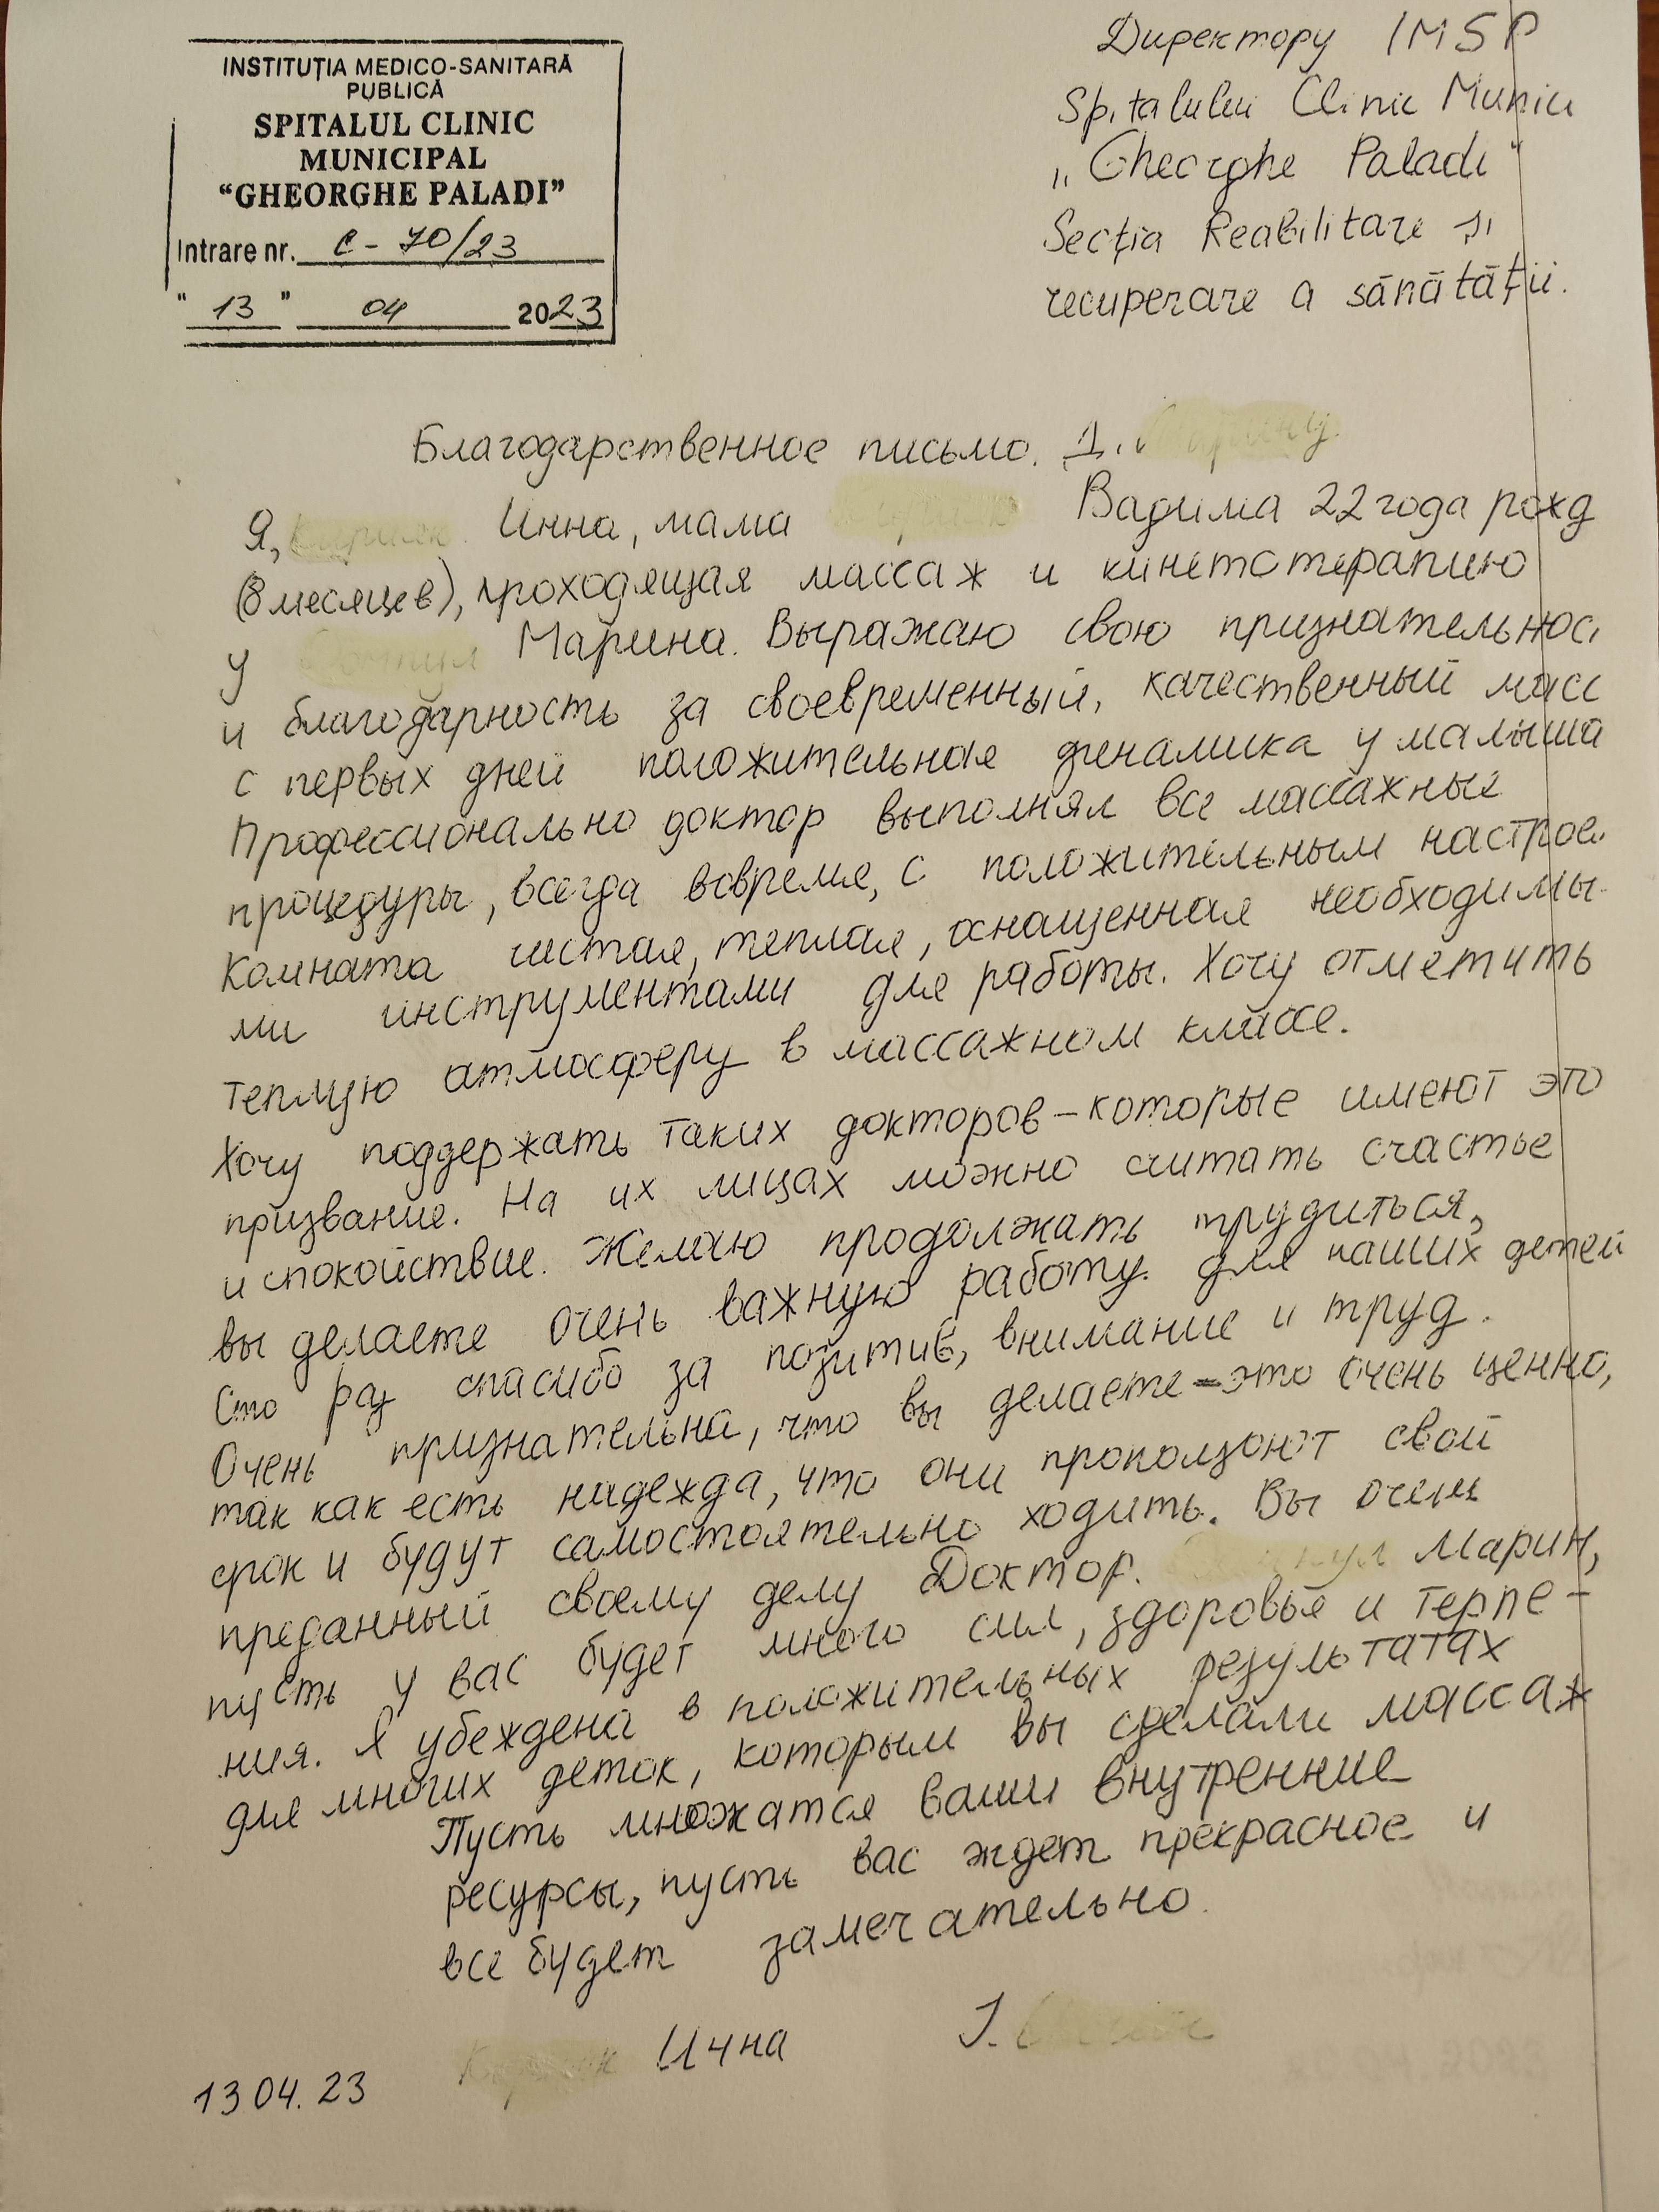 INSTITUȚIA MEDICO-SANITARĂ
PUBLICĂ
SPITALUL CLINIC
MUNICIPAL
"GHEORGHE PALADI"
Intrare nr. C - 70/23
" 13 " 04 2023
Директору IMSP
Spitalului Clinic Munici
„Gheorghe Paladi"
Secția Reabilitare și
recuperare a sănătății.
Благодарственное письмо. Д.
Я, Инна, мама Вадима 22 года рожд
(8 месяцев), проходящая массаж и кинетотерапию
у Марина. Выражаю свою признательнос
и благодарность за своевременный, качественный масс
с первых дней положительная динамика у малыша
Профессионально доктор выполнял все массажные
процедуры, всегда вовремя, с положительным настрое
Комната чистая, теплая, оснащенная необходимы-
ми инструментами для работы. Хочу отметить
теплую атмосферу в массажном классе.
Хочу поддержать таких докторов – которые имеют это
призвание. На их лицах можно считать счастье
и спокойствие. Желаю продолжать трудиться,
вы делаете очень важную работу. для наших детей
Сто раз спасибо за позитив, внимание и труд.
Очень признательна, что вы делаете – это очень ценно,
так как есть надежда, что они проползают свой
срок и будут самостоятельно ходить. Вы очень
преданный своему делу Доктор. Марин,
пусть у вас будет много сил, здоровья и терпе-
ния. Я убеждена в положительных результатах
для многих деток, которым вы сделали массаж
Пусть множатся ваши внутренние
ресурсы, пусть вас ждет прекрасное и
все будет замечательно.
Инна I.
13 04. 23